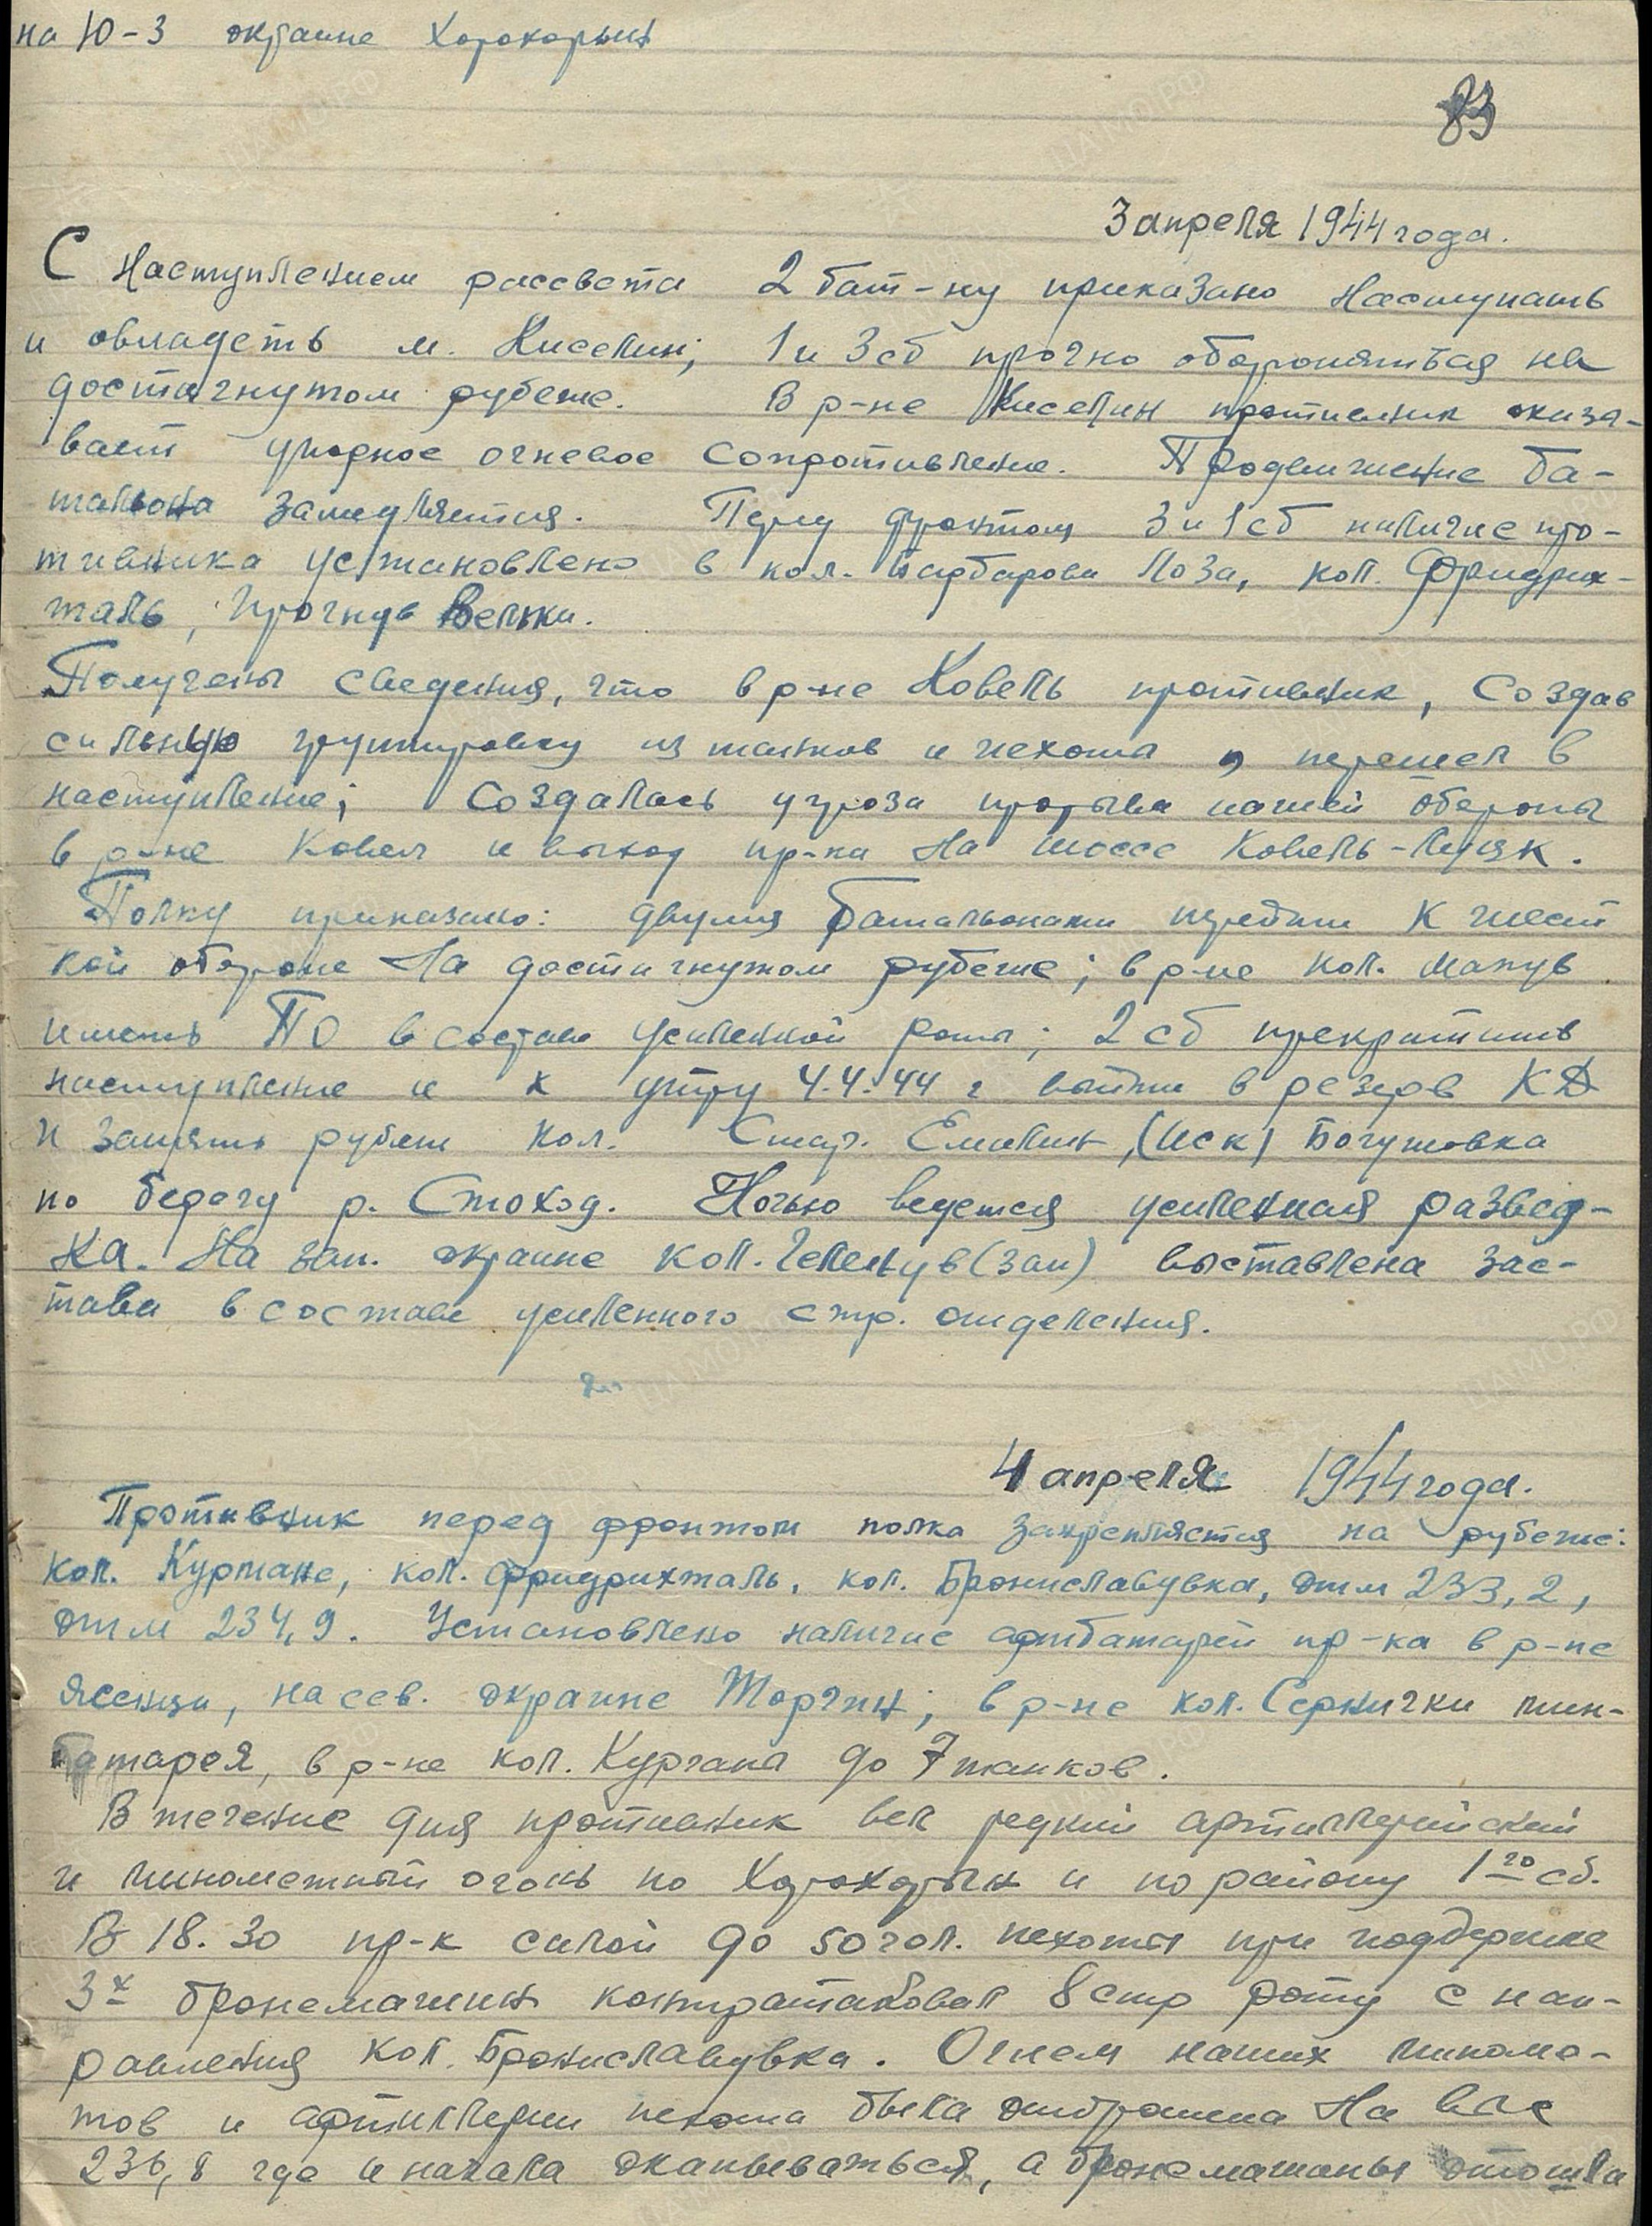 на Ю-З окраине Хорохорын
83
3 апреля 1944 года.
С наступлением рассвета 2 бат-ну приказано наступать
и овладеть м. Киселин; 1 и 3 сб прочно обороняться на
достигнутом рубеже. В р-не Киселин противник оказы-
вает упорное огневое сопротивление. Продвижение ба-
тальона замедляется. Перед фронтом 3 и 1 сб наличие про-
тивника установлено в кол. Барбарова Лоза, кол. Фридрих-
таль, Вельки.
Получены сведения, что в р-не Ковель противник, создав
сильную группировку из танков и пехоты, перешел в
наступление; создалась угроза прорыва нашей обороны
в р-не Ковель и выход пр-ка на шоссе Ковель-Луцк.
Полку приказано: двумя батальонами перейти к жест
кой обороне на достигнутом рубеже; в р-не кол.
иметь ПО в составе усиленной роты; 2 сб прекратить
наступление и к утру 4.4.44 г выйти в резерв КД
и занять рубеж кол. Стар. Емилин, (иск) Богушовка
по берегу р. Стоход. Ночью ведется усиленная развед-
ка. На зап. окраине кол. (зап) выставлена зас-
тава в составе усиленного стр. отделения.
4 апреля 1944 года.
Противник перед фронтом полка закрепляется на рубеже:
кол. Кургане, кол. Фридрихталь, кол. Брониславувка, отм 233,2,
отм 234,9. Установлено наличие артбатареи пр-ка в р-не
на сев. окраине Торчин; в р-не кол. Сернички мин-
батарея, в р-не кол. Кургана до 7 танков.
В течение дня противник вел редкий артиллерийский
и минометный огонь по Хорохорын и по району 1го сб.
В 18.30 пр-к силой до 50 чел. пехоты при поддержке
3х бронемашин контратаковал 8 стр роту с нап-
равления кол. Брониславувка. Огнем наших миноме-
тов и артиллерии пехота была отброшена на выс
236,8 где и начала окапываться, а бронемашины отошла